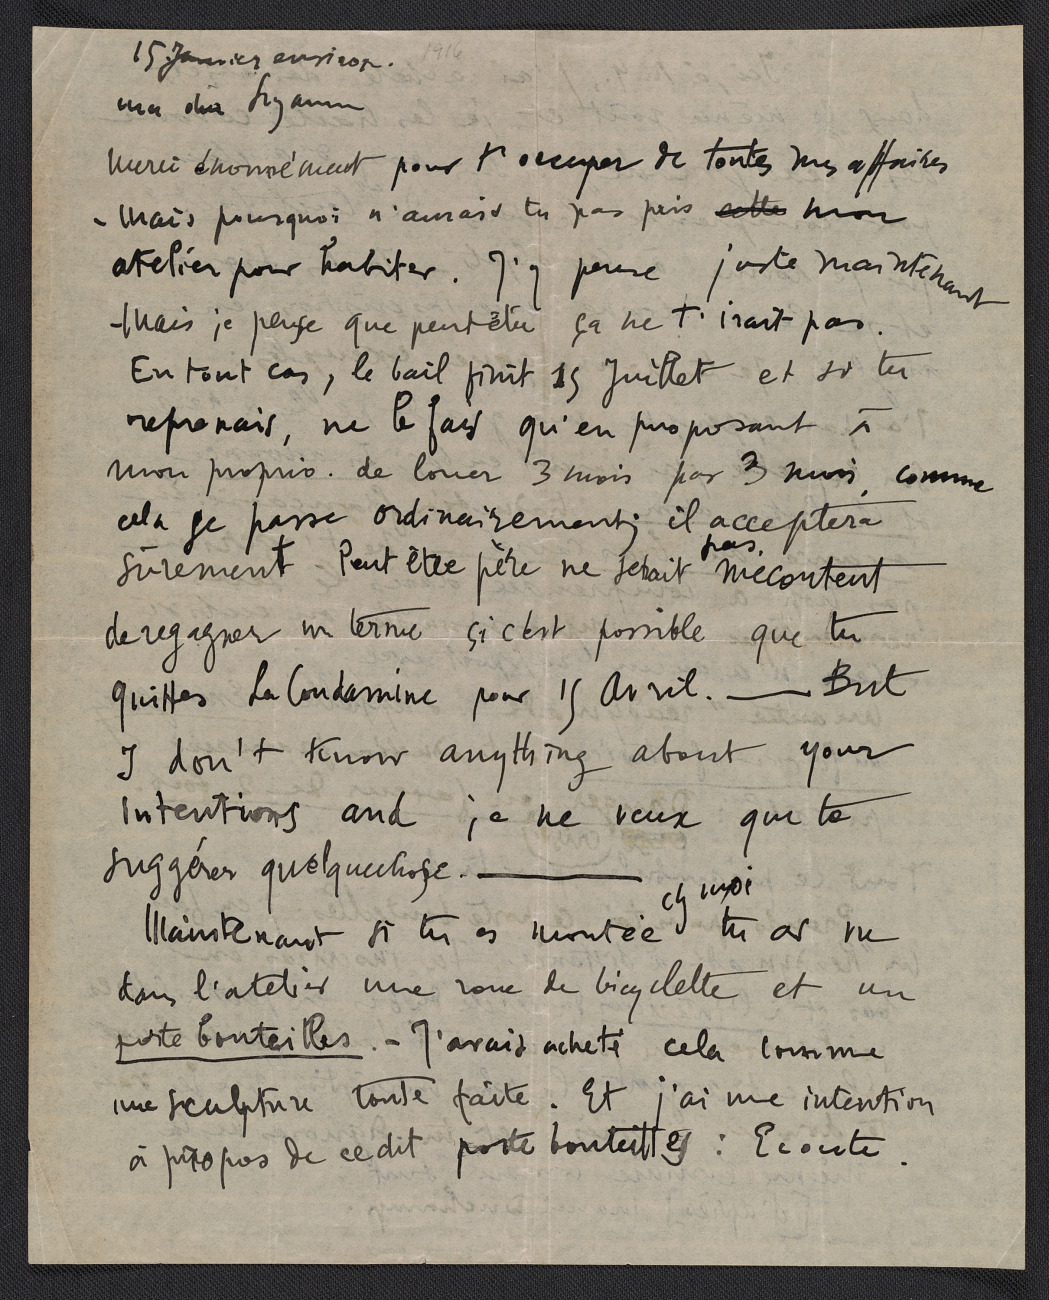 15 Janvier environ. 1916
ma chère Suzanne
Merci énormément pour t'occuper de toutes mes affaires
- Mais pourquoi n'aurais tu pas pris cette mon
atelier pour habiter. J'y pense juste maintenant
- Mais je pense que peutêtre ça ne t'irait pas.
En tout cas, le bail finit 15 Juillet et si tu
reprenais, ne le fais qu'en proposant à
mon proprio. de louer 3 mois par 3 mois, comme
cela se passe ordinairement; il acceptera
sûrement - Peut être père ne serait pas mécontent
de regagner un terme si c'est possible que tu
quittes La Condamine pour 15 Avril. — But
I don't know anything about your
intentions and je ne veux que te
suggérer quelquechose. —
Maintenant si tu es montée chez moi tu as vu
dans l'atelier une roue de bicyclette et un
porte bouteilles. - J'avais acheté cela comme
une sculpture toute faite. Et j'ai une intention
à propos de ce dit porte bouteilles : Ecoute.